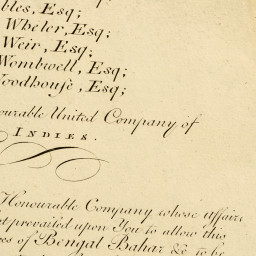 bles, Esq;
Wheler, Esq;
Weir, Esq;
Wombwell, Esq;
Woodhouſe, Esq;
ourable United Company of
INDIES.
Honourable Company whose affairs
t prevailed upon You to allow this
es of Bengal Bahar &c to be